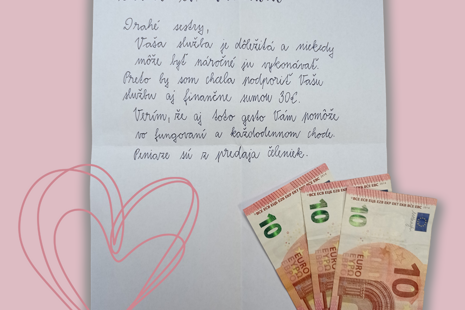 Drahé sestry,
Vaša služba je dôležitá a niekedy
môže byť náročné ju vykonávať.
Preto by som chcela podporiť Vašu
službu aj finančne sumou 30€.
Verím, že aj toto gesto Vám pomôže
vo fungovaní a každodennom chode.
Peniaze sú z predaja čeleniek.
10
10
10
EURO
10